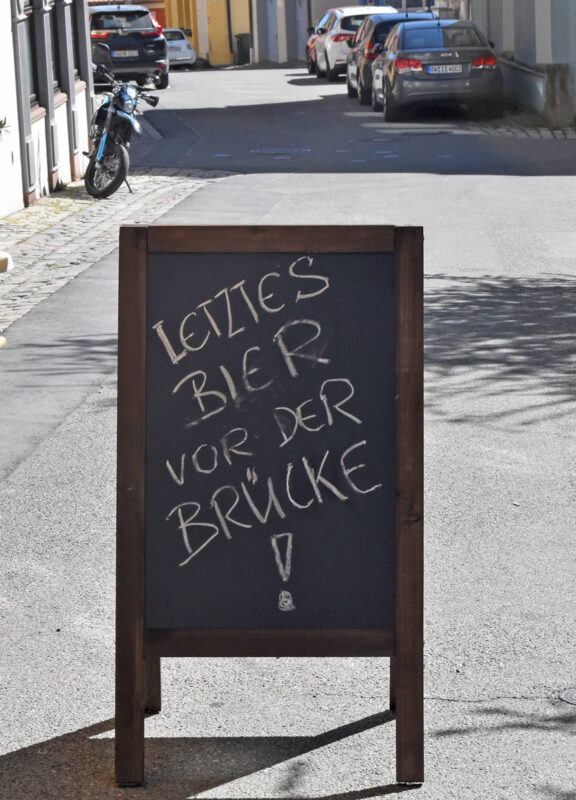 LETZTES
BIER
VOR DER
BRÜCKE
!